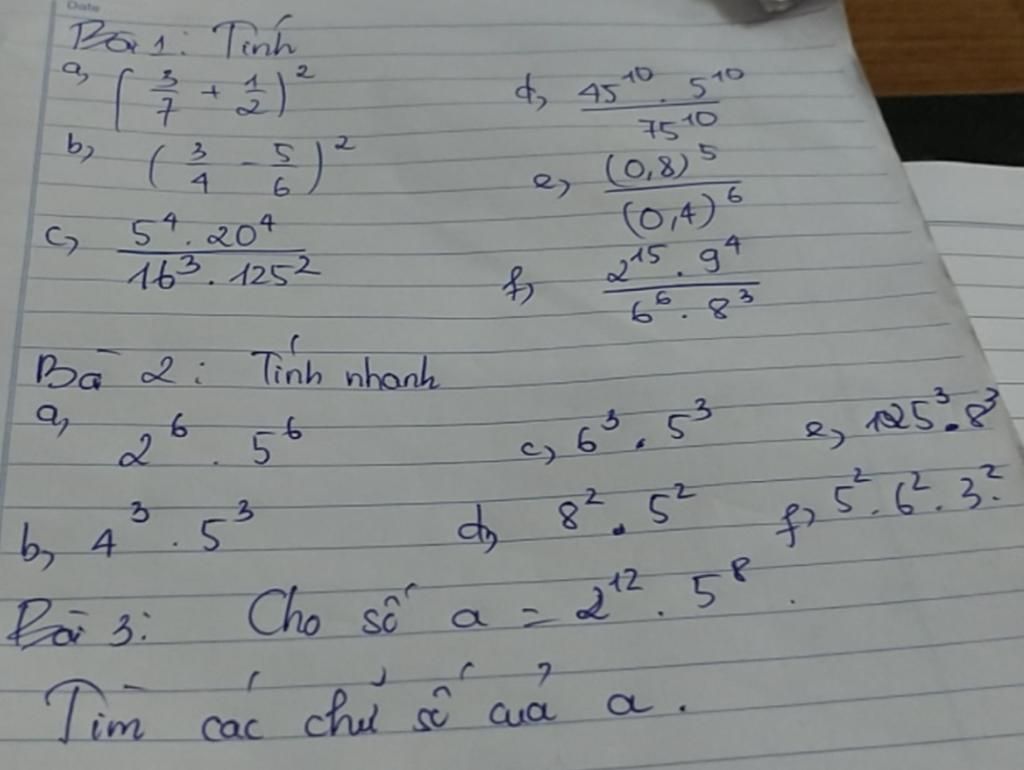 Date
Bài 1: Tính
a, (3/7 + 1/2)²
d, 45¹⁰ . 5¹⁰ / 75¹⁰
b, (3/4 - 5/6)²
e, (0,8)⁵ / (0,4)⁶
c, 5⁴ . 20⁴ / 16³ . 125²
f, 2¹⁵ . 9⁴ / 6⁶ . 8³
Bà 2: Tính nhanh
a, 2⁶ . 5⁶
c, 6³ . 5³
e, 125³ . 8³
b, 4³ . 5³
d, 8² . 5²
f, 5² . 6² . 3².
Bài 3: Cho số a = 2¹² . 5⁸ .
Tìm các chữ số của a .